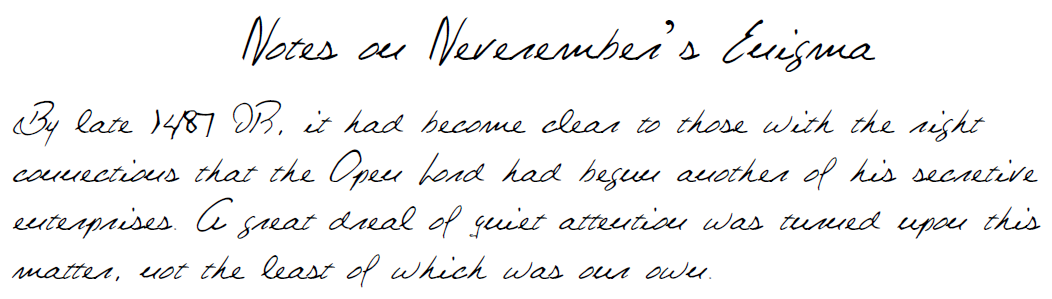 Notes on Neverember's Enigma
By late 1487 DR, it had become clear to those with the right
connections that the Open Lord had begun another of his secretive
enterprises. A great dreal of quiet attention was turned upon this
matter, not the least of which was our own.